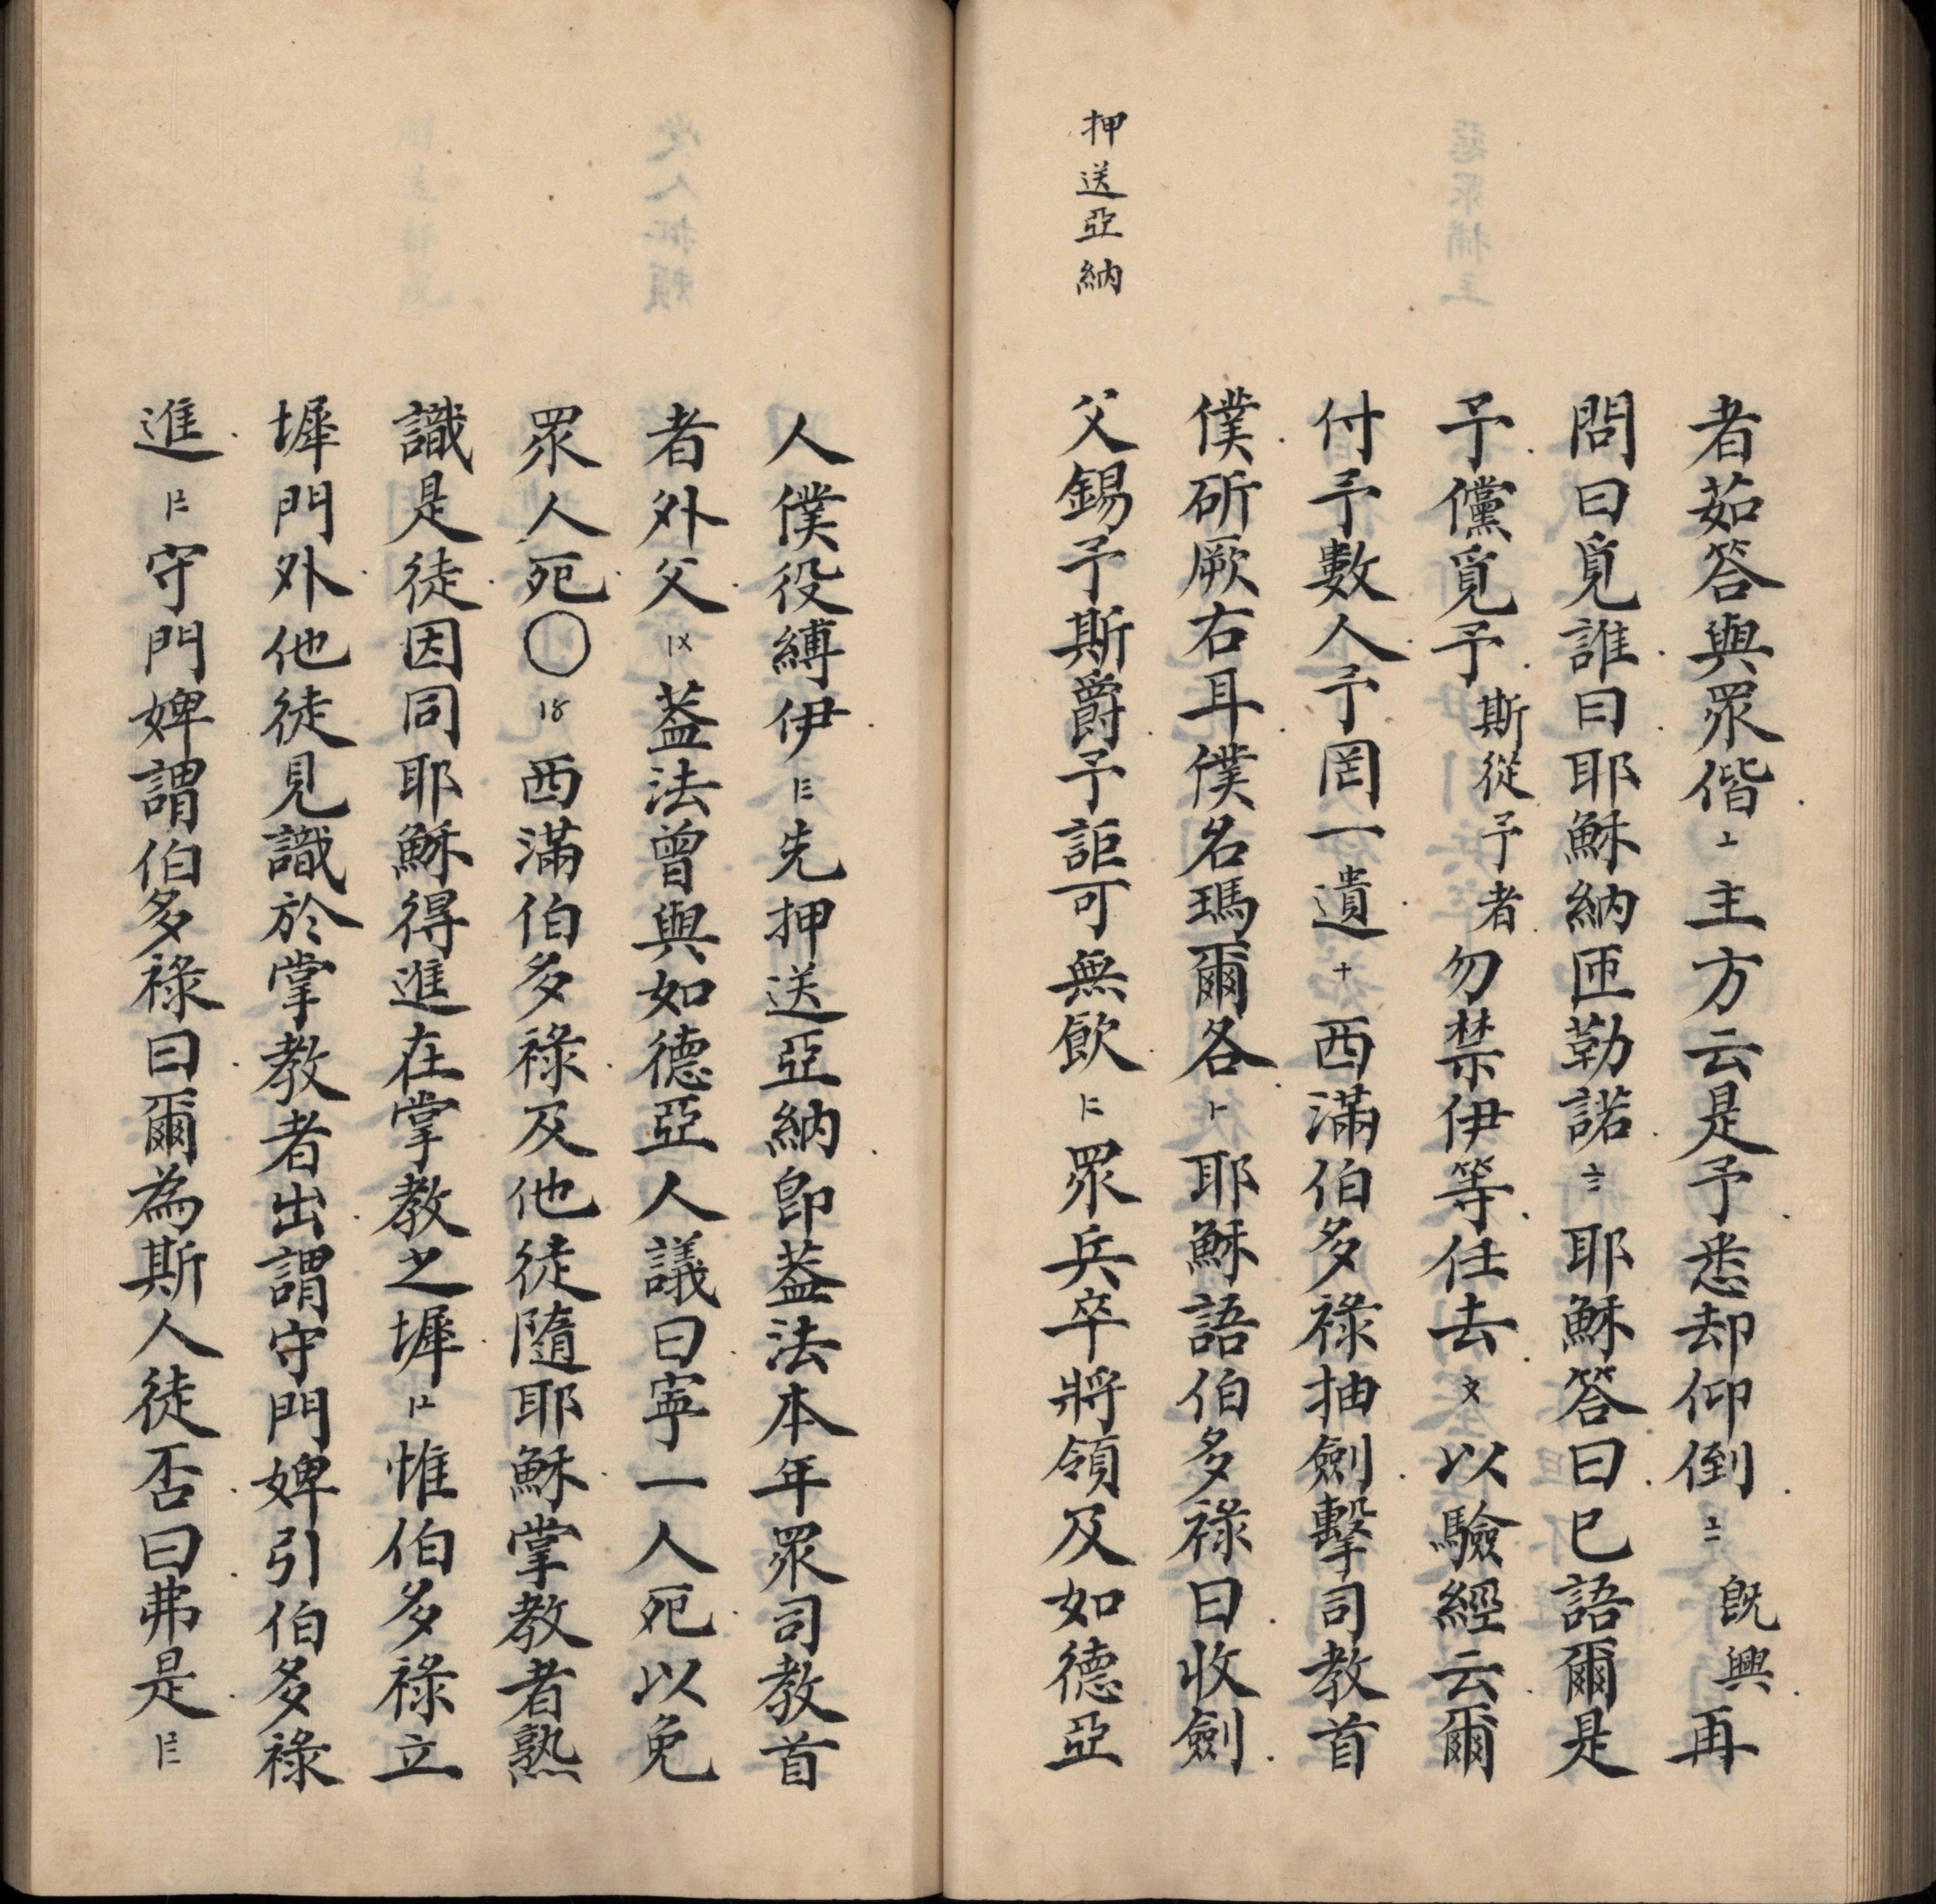 押送亞納
者茹答與眾偕〦主方云是予悉却仰倒〧既興再
問曰覓誰曰耶穌納匝勒諾〨耶穌答曰已語爾是
予儻覓予斯從予者勿禁伊等任去〩以驗經云爾
付予數人予罔一遺十西滿伯多祿抽劍擊司教首
僕斫厥右耳僕名瑪爾各耶穌語伯多祿曰收劍
父錫予斯爵予詎可無飲眾兵卒將領及如德亞
人僕役縛伊先押送亞納即葢法本年眾司教首
者外父葢法曾與如德亞人議曰寧一人死以免
眾人死〇西滿伯多祿及他徒隨耶穌掌教者熟
識是徒因同耶穌得進在掌教之墀惟伯多祿立
墀門外他徒見識於掌教者出謂守門婢引伯多祿
進守門婢謂伯多祿曰爾為斯人徒否曰弗是